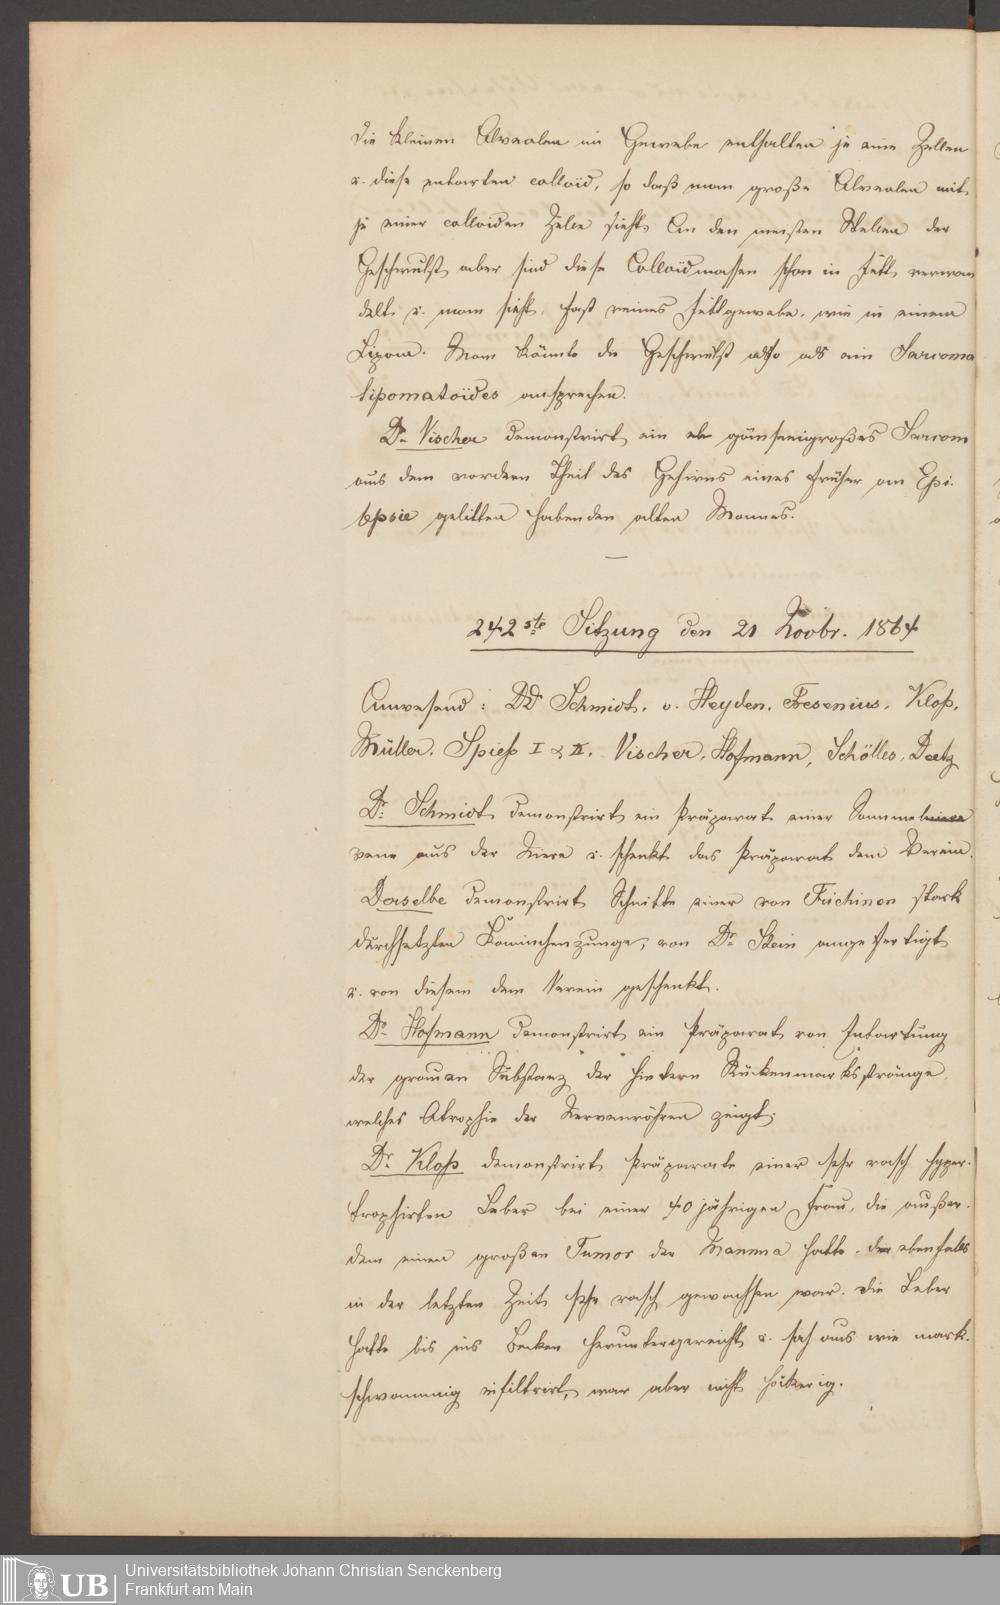 die kleinen Alveolen im Gewebe enthalten je eine Zellen
u. diese entarten colloïd, so daß man große Alveolen mit
je einer colloiden Zelle sieht. An den meisten Stellen der
Geschwulst aber sind diese Colloïdmassen schon in Fett verwan
delt u. man sieht fast reines Fettgewebe, wie in einem
Lipom. Man könnte die Geschwulst also als ein Sarcoma
lipomatoïdes ansprechen.
Dr. Vischer demonstrirt ein gänseeigroßes Sarcom
aus dem vordern Theil des Gehirns eines früher an Epi-
lepsie gelitten habenden alten Mannes.
242ste Sitzung den 21 Novbr. 1864
Anwesend: DD Schmidt, v. Heyden, Fresenius, Kloß,
Müller, Spieß I & II, Vischer, Hofmann, Schölles, Deetz
Dr. Schmidt demonstrirt ein Präparat einer Sammel
vene aus der Niere u. schenkt das Präparat dem Verein.
Derselbe demonstrirt Schnitte einer von Trichinen stark
durchsetzten Kaninchenzunge, von Dr. Stein angefertigt
u. von diesem dem Verein geschenkt.
Dr. Hofmann demonstrirt ein Präparat von Entartung
der grauen Substanz der hintern Rückenmarksstränge
welches Atrophie der Nervenröhren zeigt.
Dr. Kloß demonstrirt Präparate einer sehr rasch hyper-
trophirten Leber bei einer 40 jährigen Frau, die außer-
dem einen großen Tumor der Mamma hatte, der ebenfalls
in der letzten Zeit sehr rasch gewachsen war. Die Leber
hatte bis ins Becken heruntergereicht u. sah aus wie mark-
schwammig infiltrirt, war aber nicht höckerig.
UB
Universitätsbibliothek Johann Christian Senckenberg
Frankfurt am Main